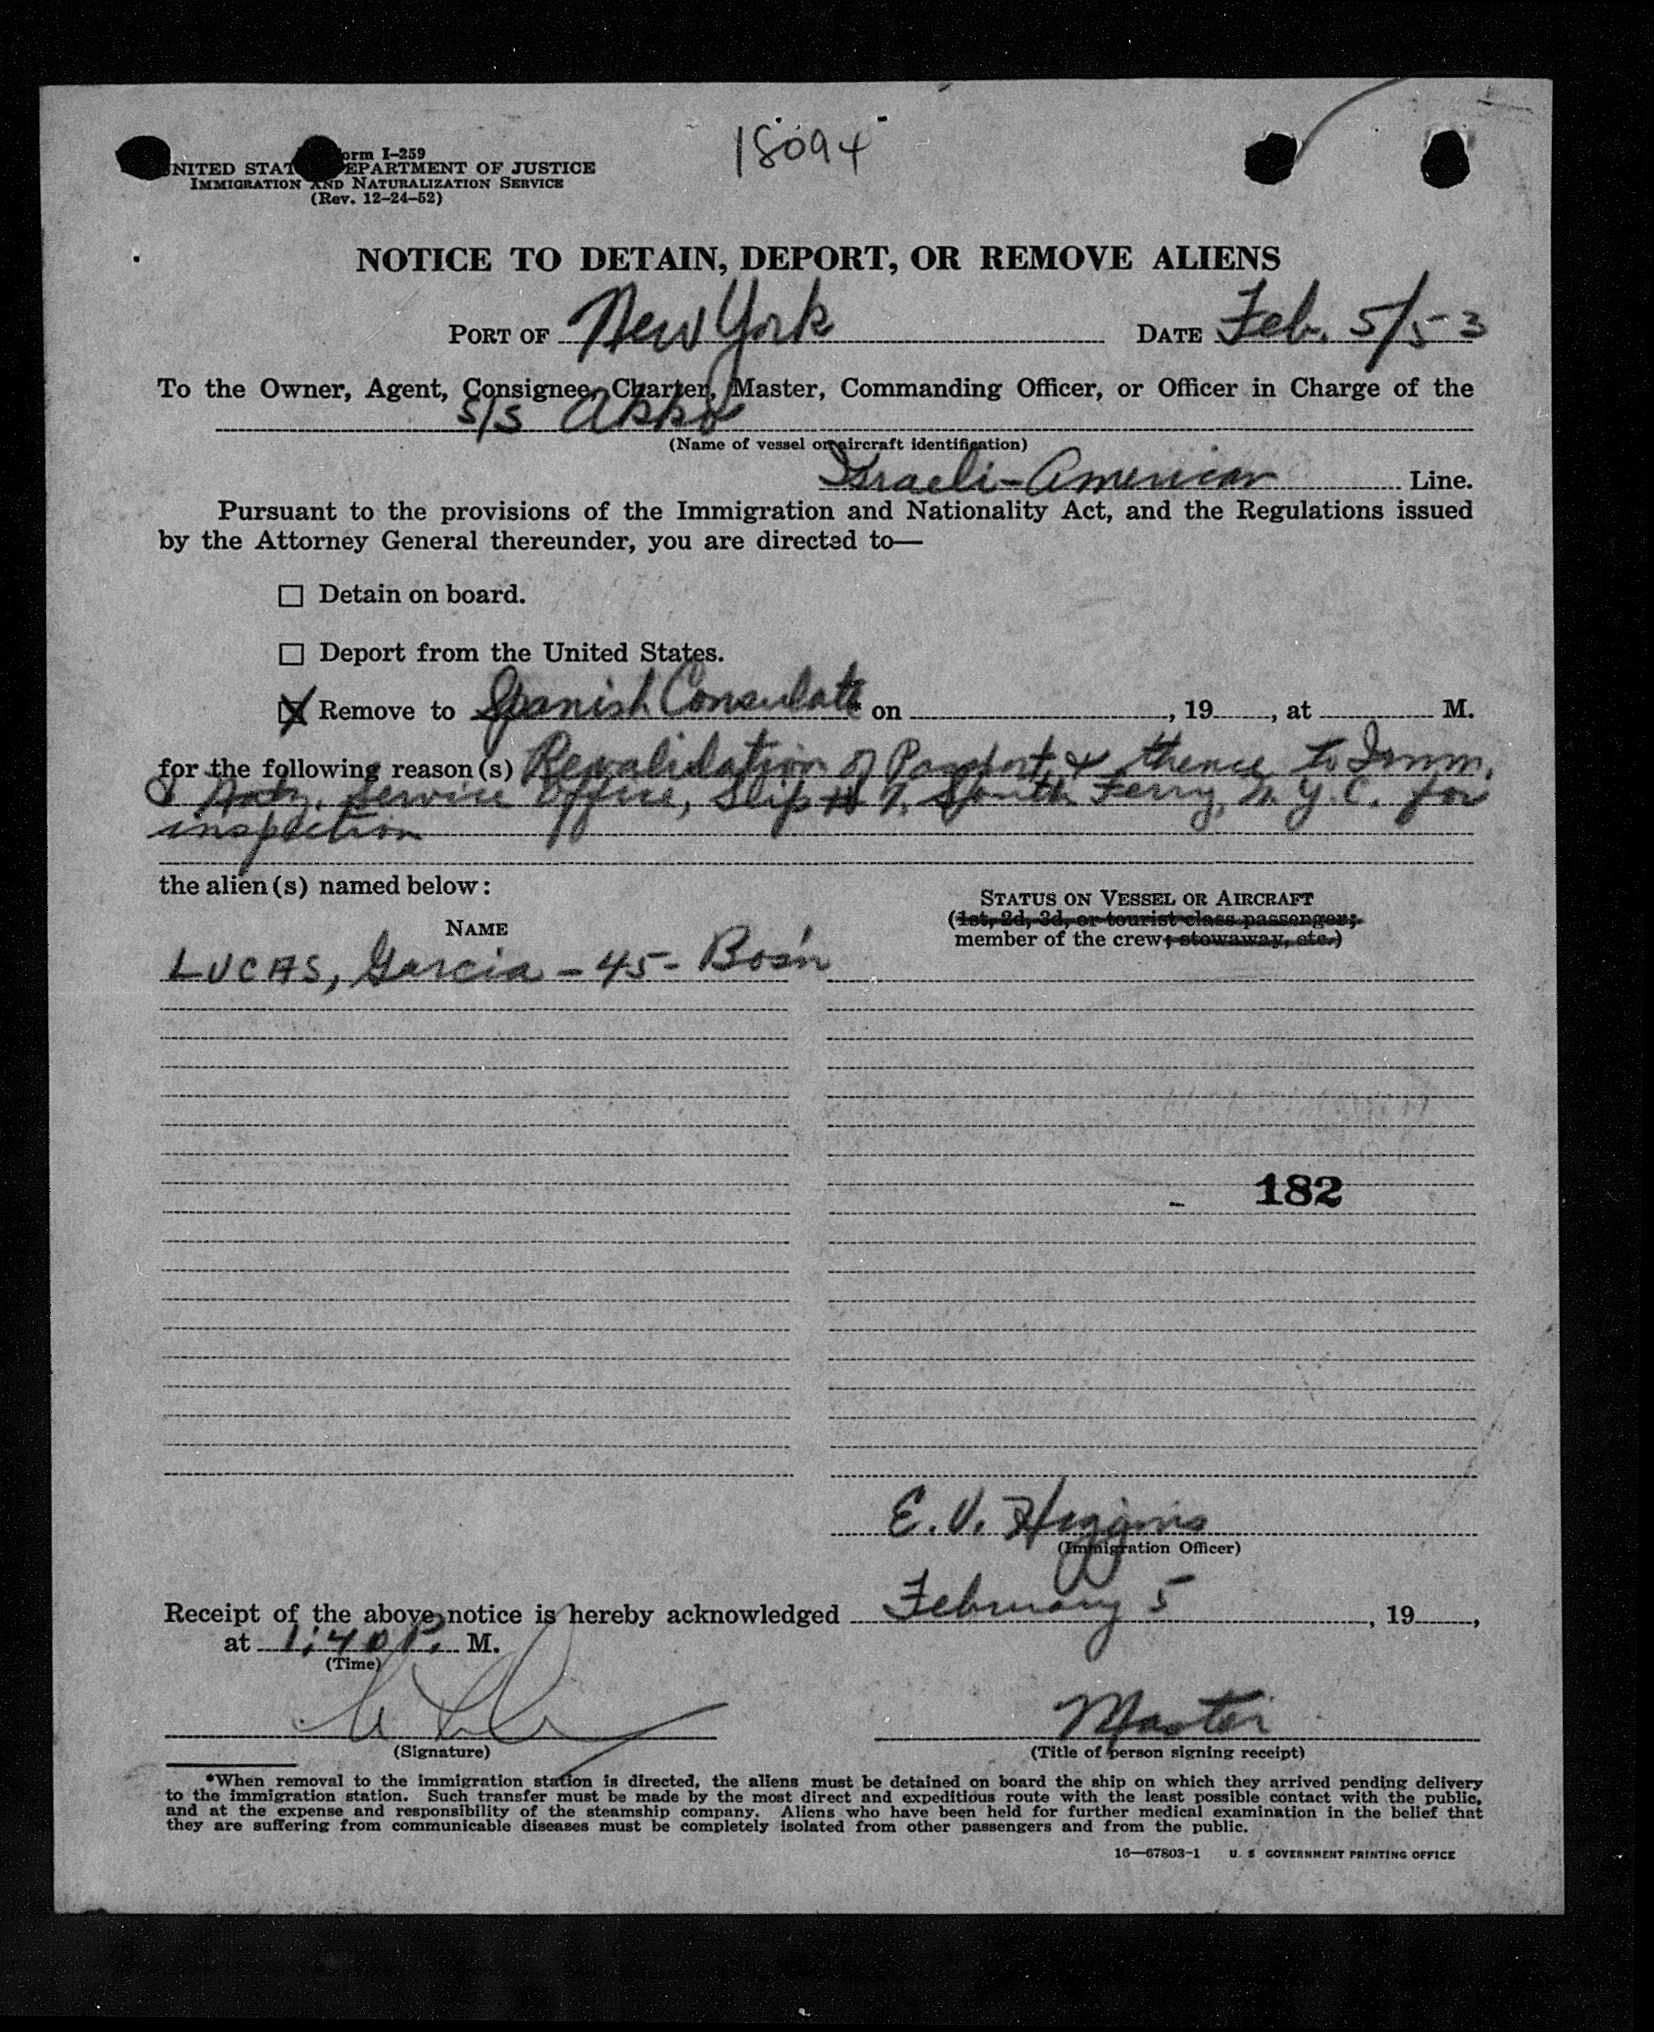 18094
orm I-259
NITED STAT EPARTMENT OF JUSTICE
IMMIGRATION AND NATURALIZATION SERVICE
(Rev. 12-24-52)
NOTICE TO DETAIN, DEPORT, OR REMOVE ALIENS
PORT OF New York DATE Feb. 5/53
To the Owner, Agent, Consignee, Charter, Master, Commanding Officer, or Officer in Charge of the
S/S Akko
(Name of vessel or aircraft identification)
Israeli-American Line.
Pursuant to the provisions of the Immigration and Nationality Act, and the Regulations issued
by the Attorney General thereunder, you are directed to—
Detain on board.
Deport from the United States.
X Remove to Spanish Consulate * on , 19 , at M.
for the following reason(s) Revalidation of Passport & thence to Imm.
& Natz. Service Office, Slip # 7, South Ferry, N.Y.C. for
inspection
the alien(s) named below:
STATUS ON VESSEL OR AIRCRAFT
(1st, 2d, 3d, or tourist class passenger;
NAME
member of the crew; stowaway, etc.)
LUCAS, Garcia - 45 - Bos'n
182
E. V. Higgins
(Immigration Officer)
Receipt of the above notice is hereby acknowledged February 5 , 19 ,
at 1:40 P. M.
(Time)
Master
(Signature) (Title of person signing receipt)
*When removal to the immigration station is directed, the aliens must be detained on board the ship on which they arrived pending delivery
to the immigration station. Such transfer must be made by the most direct and expeditious route with the least possible contact with the public,
and at the expense and responsibility of the steamship company. Aliens who have been held for further medical examination in the belief that
they are suffering from communicable diseases must be completely isolated from other passengers and from the public.
16—67803-1 U. S GOVERNMENT PRINTING OFFICE